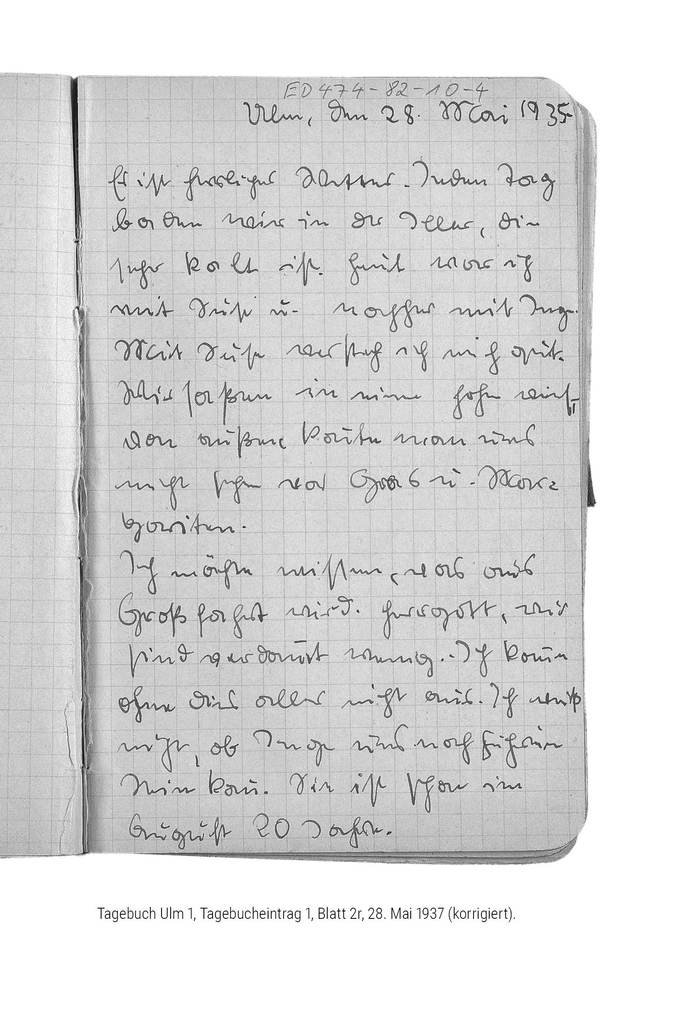 ED 474-82-10-4
Ulm, den 28. Mai 1935
Es ist herrliches Wetter. Jeden Tag
baden wir in der Iller, die
sehr kalt ist. Heut war ich
mit Suse u. nachher mit Inge.
Mit Suse versteh ich mich gut.
Wir saßen in einer hohen Wies,
von außen konnte man uns
nicht sehen vor Gras u. Mar-
gariten.
Ich möchte wissen, was aus
Großhartmut wird. Herrgott, wir
sind verdammt wenig. Ich komm
ohne dies alles nicht aus. Ich weiß
nicht, ob Inge uns noch Führerin
sein kann. Sie ist schon im
August 20 Jahre.
Tagebuch Ulm 1, Tagebucheintrag 1, Blatt 2r, 28. Mai 1937 (korrigiert).